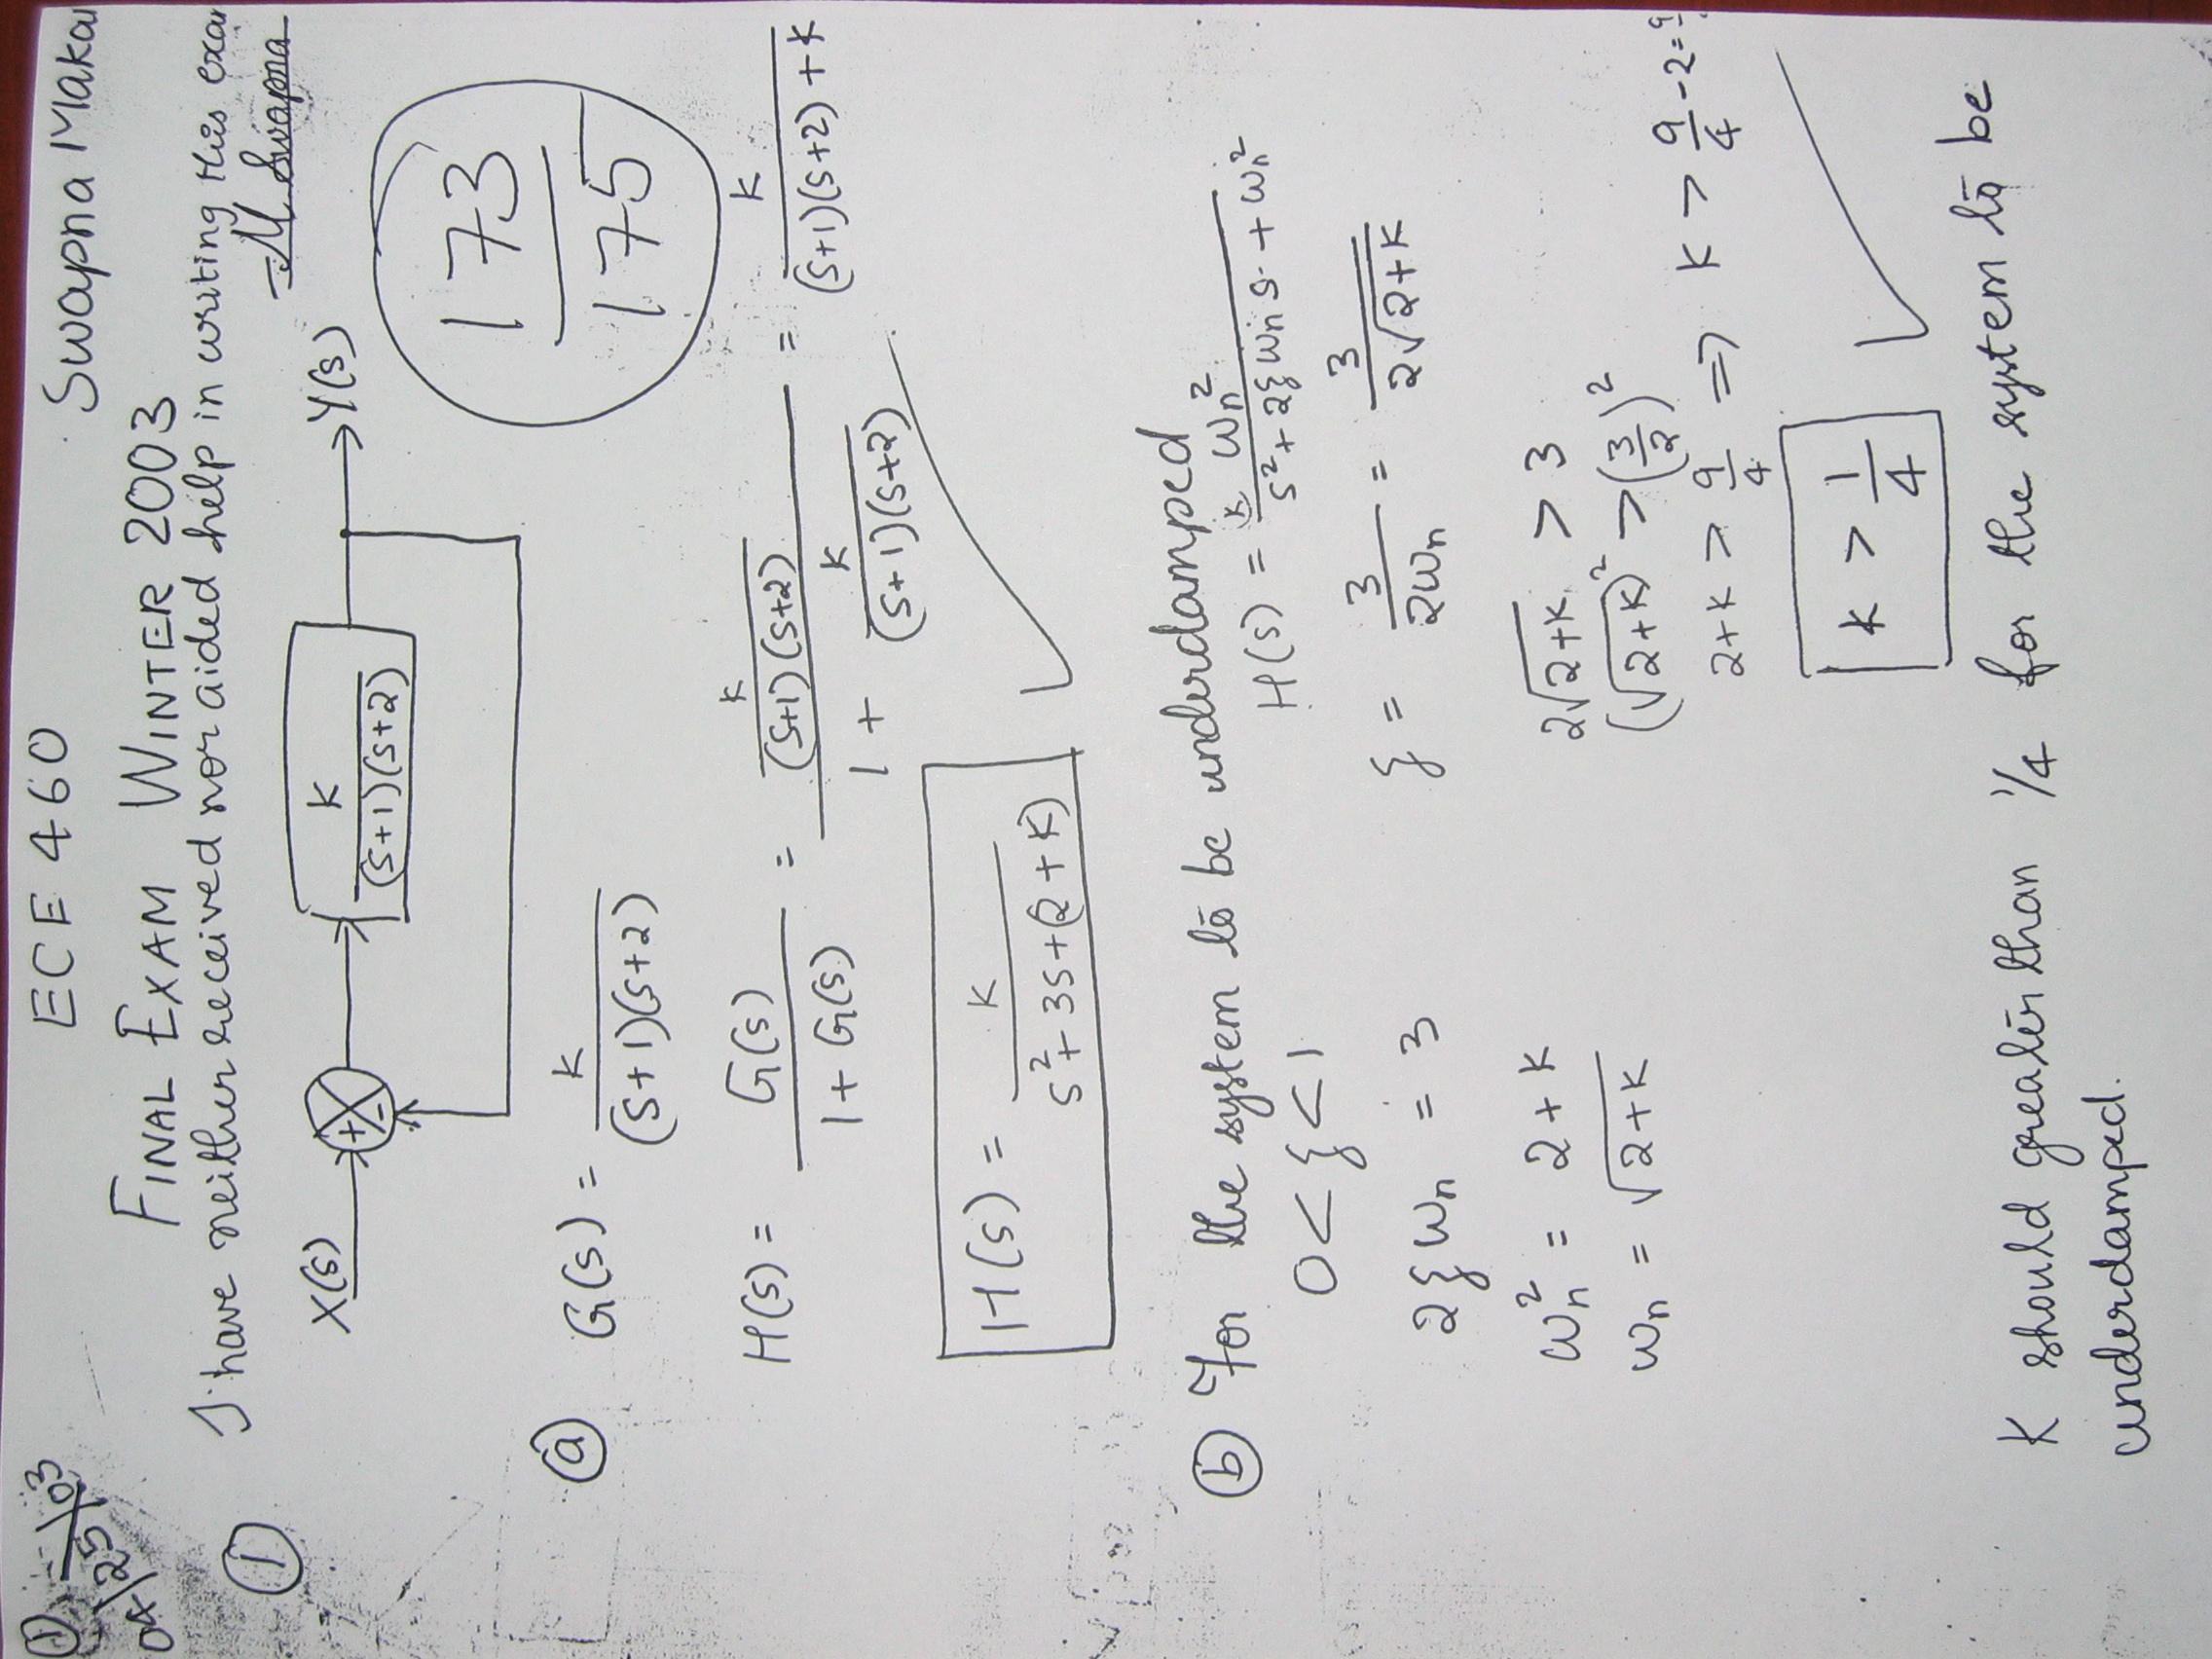 ① ECE 460 Swapna
04/25/03
FINAL EXAM WINTER 2003
I have neither received nor aided help in writing this
M. Swapna
①
X(s) + - K/((s+1)(s+2)) Y(s)
173/175
ⓐ G(s) = K/((s+1)(s+2))
H(s) = G(s)/(1 + G(s)) = (K/((s+1)(s+2)))/(1 + K/((s+1)(s+2))) = K/((s+1)(s+2)+K)
H(s) = K/(s² + 3s + (2+K))
ⓑ For the system to be underdamped
0 < ξ < 1 H(s) = (K) ωn²/(s² + 2ξωn s + ωn²)
2ξωn = 3 ξ = 3/(2ωn) = 3/(2√(2+K))
ωn² = 2+K 2√(2+K) > 3
ωn = √(2+K) (√(2+K))² > (3/2)²
2+K > 9/4 => K > 9/4 - 2 =
K > 1/4
K should greater than 1/4 for the system to be
underdamped.